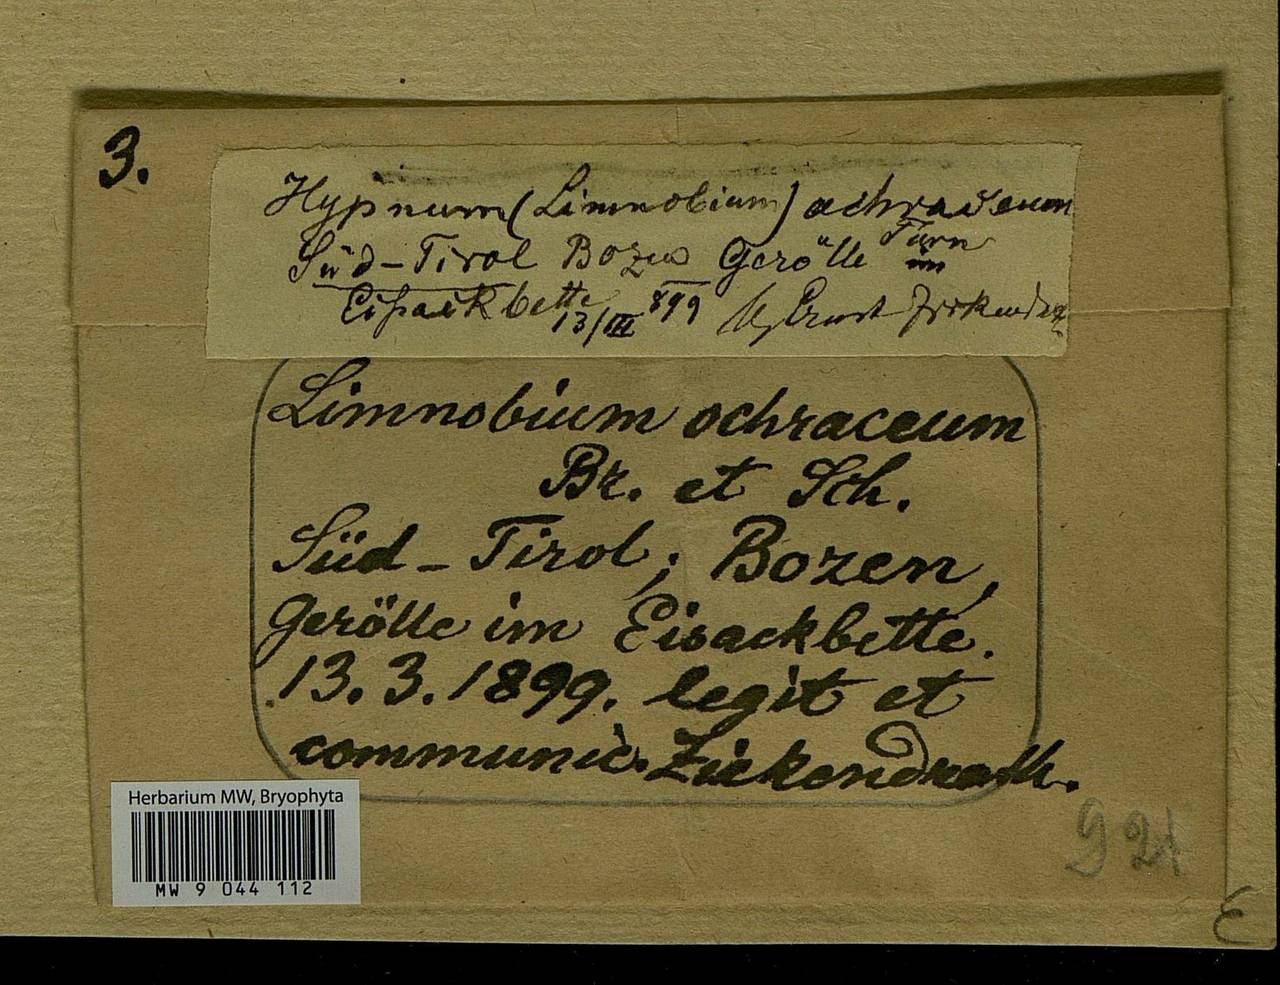 3.
Hypnum (Limnobium) ochraceum
Süd-Tirol Bozen Gerölle
im
Eisackbette
13/III 899 Ernst Zickendrath
Limnobium ochraceum
Br. et Sch.
Süd-Tirol; Bozen,
Gerölle im Eisackbette.
13.3.1899. legit et
communic. Zickendrath.
Herbarium MW, Bryophyta
MW 9 044 112
921
E